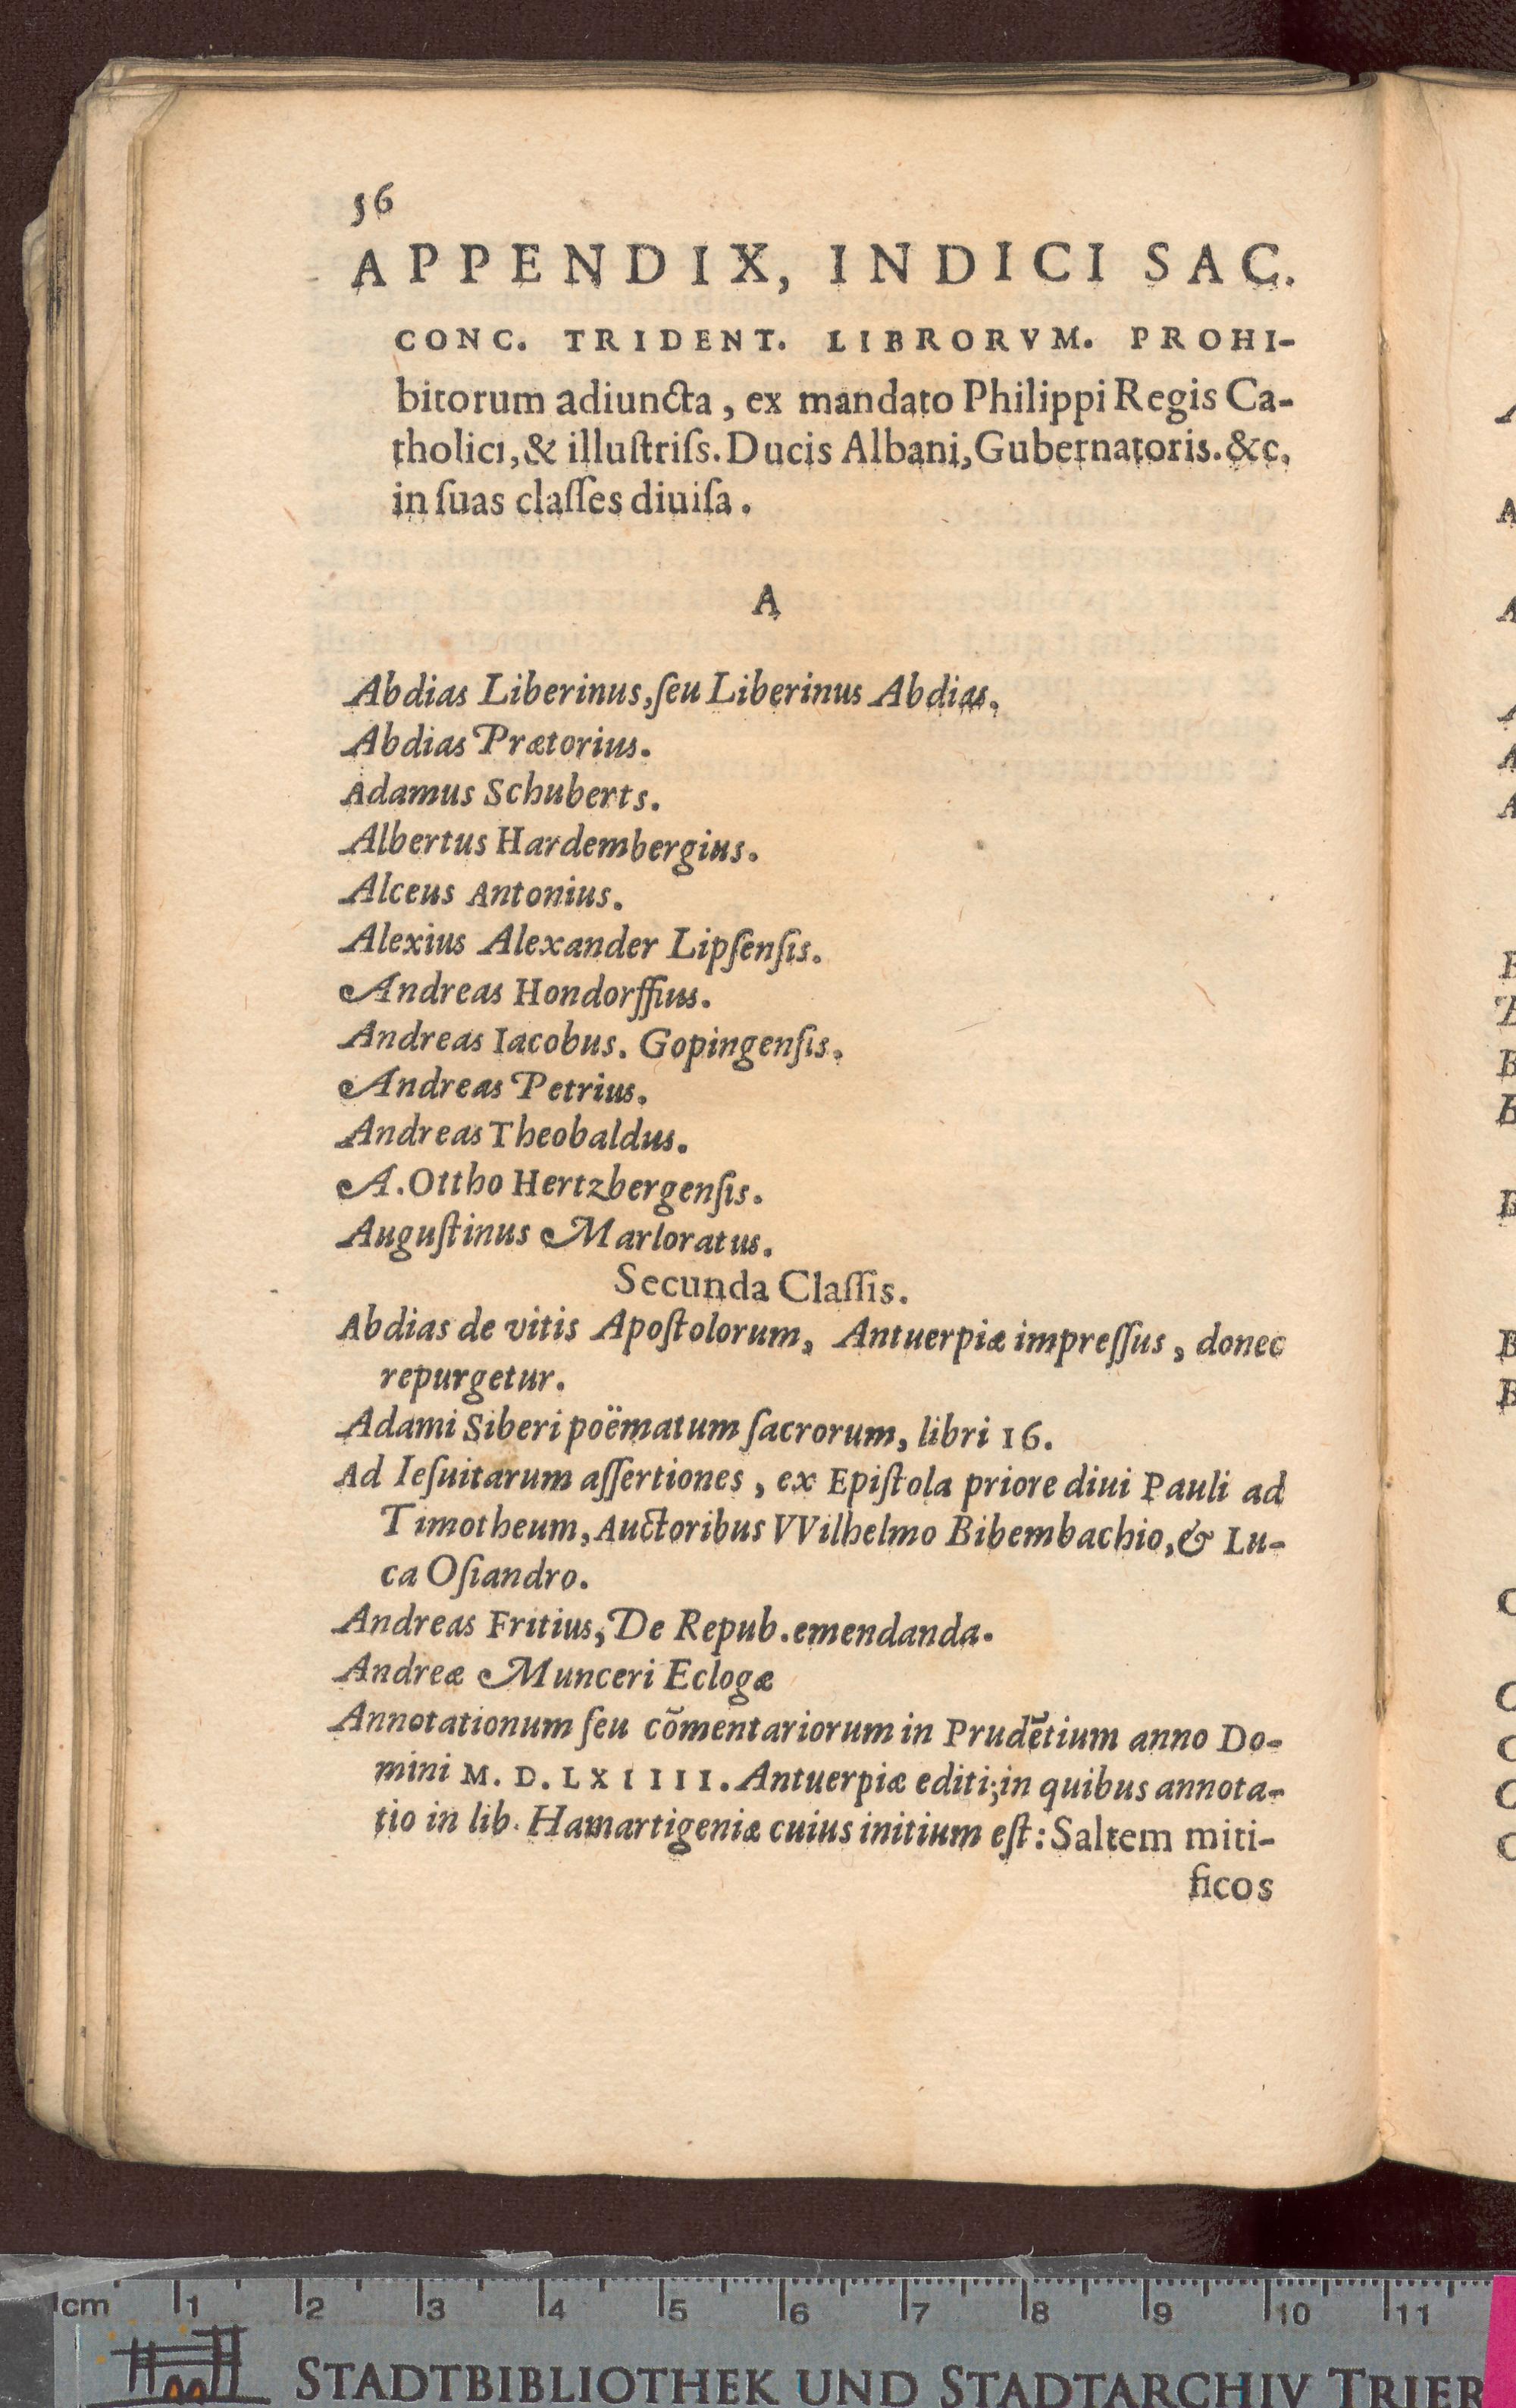 56
APPENDIX, INDICI SAC.
CONC. TRIDENT. LIBRORVM. PROHI-
bitorum adiuncta, ex mandato Philippi Regis Ca-
tholici, & illuſtriſs. Ducis Albani, Gubernatoris. &c.
in ſuas claſſes diuiſa.
A
Abdias Liberinus, ſeu Liberinus Abdias.
Abdias Prætorius.
Adamus Schuberts.
Albertus Hardembergius.
Alceus Antonius.
Alexius Alexander Lipſenſis.
Andreas Hondorffius.
Andreas Iacobus. Gopingenſis.
Andreas Petrius.
Andreas Theobaldus.
A. Ottho Hertzbergenſis.
Auguſtinus Marloratus.
Secunda Claſſis.
Abdias de vitis Apoſtolorum, Antuerpiæ impreſſus, donec
repurgetur.
Adami Siberi poëmatum ſacrorum, libri 16.
Ad Ieſuitarum aſſertiones, ex Epiſtola priore diui Pauli ad
Timotheum, Auctoribus VVilhelmo Bibembachio, & Lu-
ca Oſiandro.
Andreas Fritius, De Repub. emendanda.
Andreæ Munceri Eclogæ
Annotationum ſeu cõmentariorum in Prudẽtium anno Do-
mini M. D. LXIIII. Antuerpiæ editi; in quibus annota-
tio in lib. Hamartigeniæ cuius initium eſt: Saltem miti-
ficos
cm 1 2 3 4 5 6 7 8 9 10 11
STADTBIBLIOTHEK UND STADTARCHIV TRIER